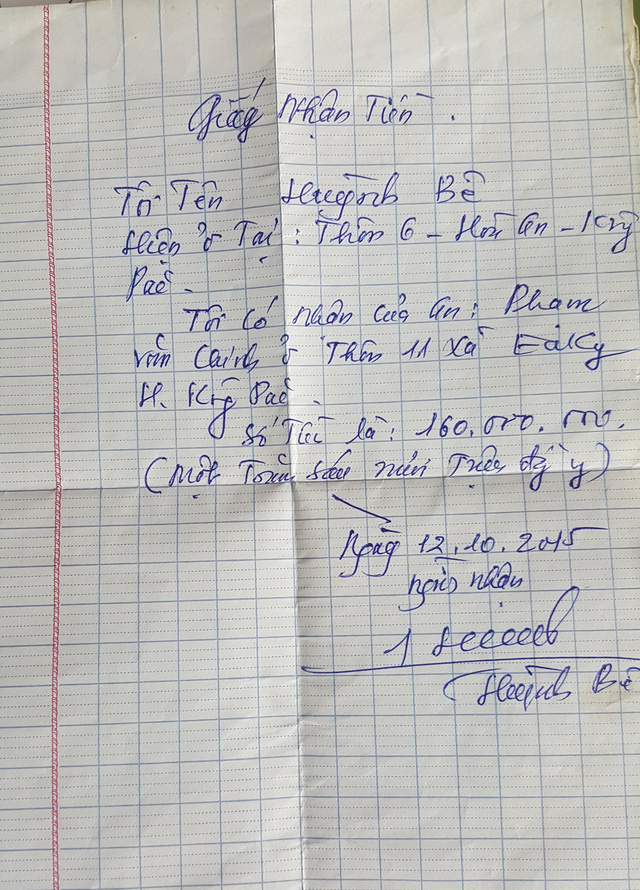 Giấy Nhận Tiền.
Tôi Tên Huỳnh Bê
Hiện ở Tại: Thôn 6 - Hòa An - Krông
Pắc -
Tôi có nhận của an: Phạm
văn Cảnh ở Thôn 11 xã EaKly
H. Krông Pắc.
Số Tiền là: 160.000.000.
(một Trăm sáu mươi Triệu đồng y)
Ngày 12.10.2015
người nhận
Huỳnh Bê